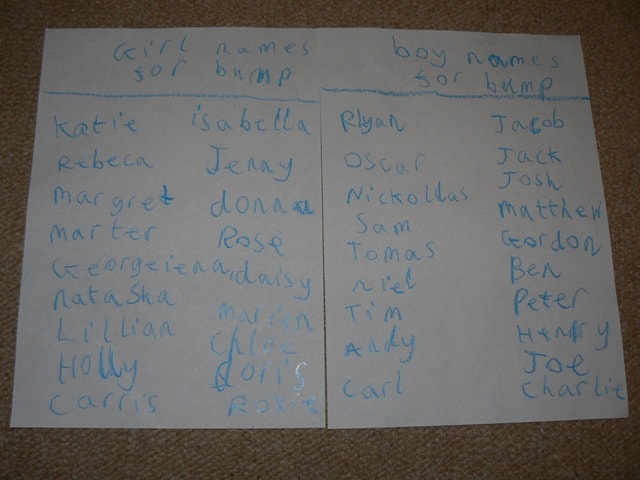 Girl names
for bump
Katie
Rebeca
Margret
Marter
Georgeiena,
natasha
Lillian
Holly
Carris
isabella
Jenny
donna
Rose
daisy
Marian
Chloe
doris
Roxie
boy names
for bump
Rhyan
Oscar
Nickollas
Sam
Tomas
niel
Tim
Andy
Carl
Jacob
Jack
Josh
Matthew
Gordon
Ben
Peter
Henry
Joe
Charlie